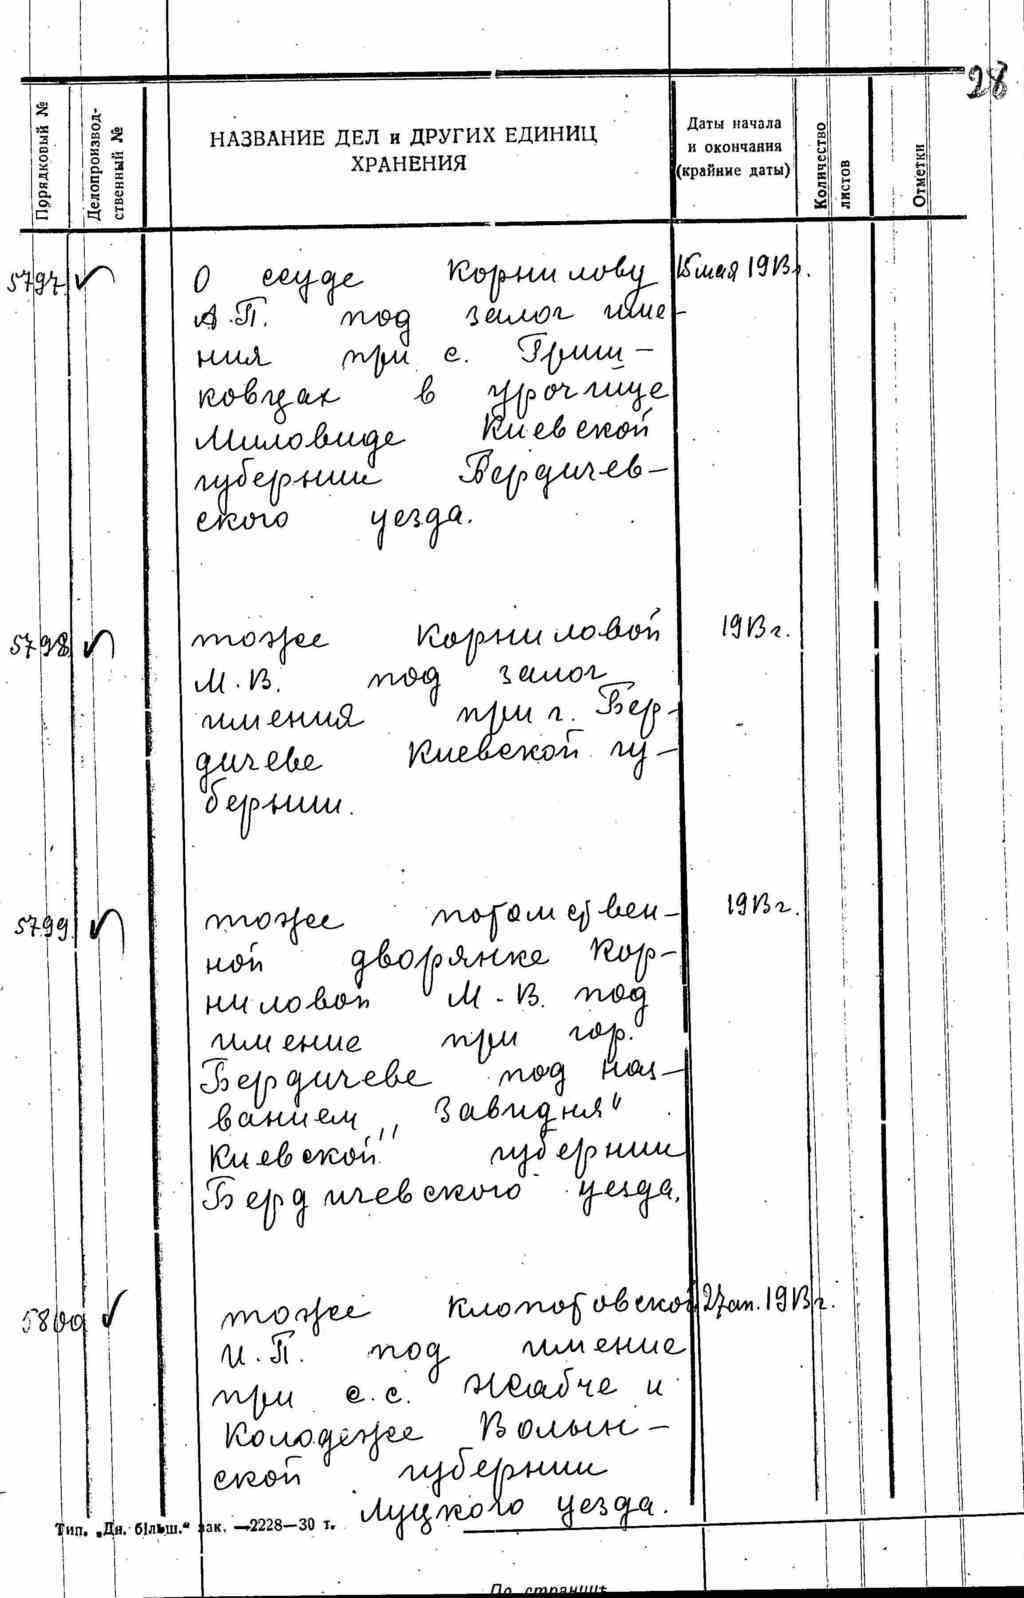 28
Порядковый №
Делопроизвод-
ственный №
НАЗВАНИЕ ДЕЛ и ДРУГИХ ЕДИНИЦ
ХРАНЕНИЯ
Даты начала
и окончания
(крайние даты)
Количество
листов
Отметки
5797 О ссуде Корнилову 15 мая 1913 г.
А.П. под залог име-
ния при с. Гриш-
ковцах в урочище
Миловиде Киевской
губернии Бердичев-
ского уезда.
5798 тоже Корниловой 1913 г.
М.В. под залог
имения при г. Бер-
дичеве Киевской гу-
бернии.
5799 тоже потомствен- 1913 г.
ной дворянке Кор-
ниловой М.В. под
имение при гор.
Бердичеве под наз-
ванием „Завидня"
Киевской губернии
Бердичевского уезда.
5800 тоже Клопотовской 27 ап. 1913 г.
И.П. под имение
при с.с. Жабче и
Колодеже Волын-
ской губернии
Луцкого уезда.
Тип. „Дн. більш." зак. —2228—30 т.
По странице